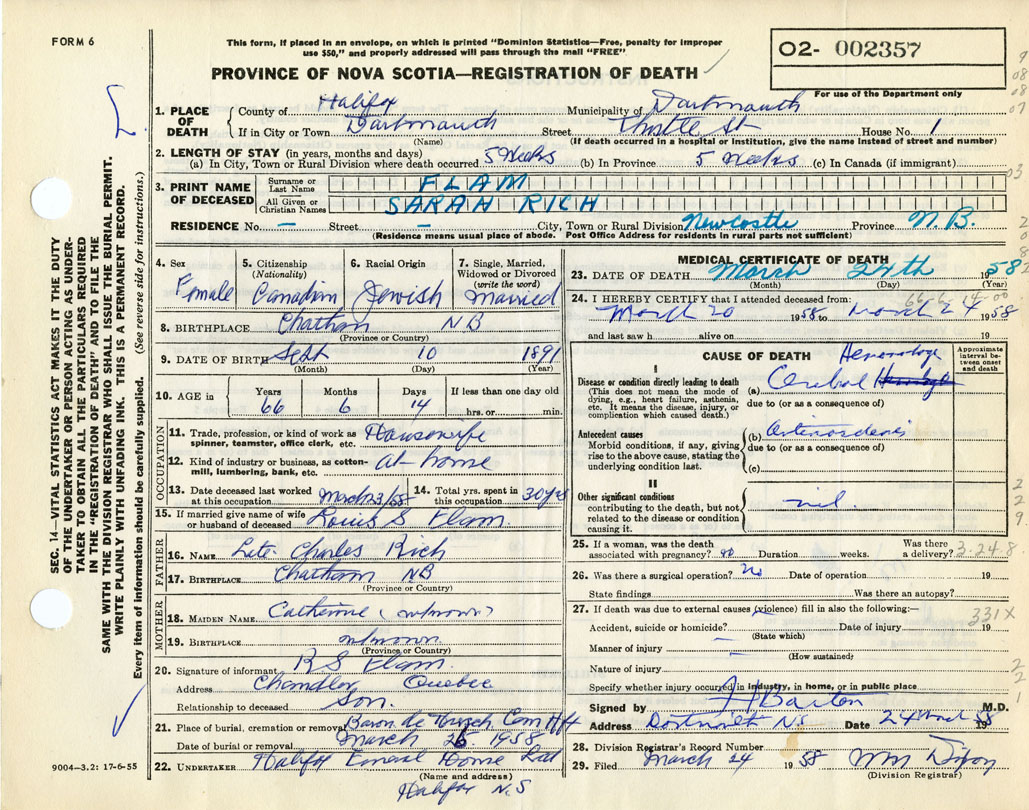 FORM 6
This form, if placed in an envelope, on which is printed "Dominion Statistics—Free, penalty for improper
use $50," and properly addressed will pass through the mail "FREE"
PROVINCE OF NOVA SCOTIA—REGISTRATION OF DEATH
02- 002357
For use of the Department only
1. PLACE OF DEATH County of Halifax Municipality of Dartmouth
If in City or Town Dartmouth Street Thistle St House No. 1
(Name) (If death occurred in a hospital or institution, give the name instead of street and number)
2. LENGTH OF STAY (in years, months and days)
(a) In City, Town or Rural Division where death occurred 5 Weeks (b) In Province 5 Weeks (c) In Canada (if immigrant)
3. PRINT NAME OF DECEASED
Surname or Last Name FLAM
All Given or Christian Names SARAH RICH
RESIDENCE No. — Street — City, Town or Rural Division Newcastle Province N.B.
(Residence means usual place of abode. Post Office Address for residents in rural parts not sufficient)
4. Sex Female
5. Citizenship (Nationality) Canadian
6. Racial Origin Jewish
7. Single, Married, Widowed or Divorced (write the word) Married
8. BIRTHPLACE Chatham NB
(Province or Country)
9. DATE OF BIRTH Sept 10 1891
(Month) (Day) (Year)
10. AGE in Years 66 Months 6 Days 14 If less than one day old hrs. or min.
OCCUPATION
11. Trade, profession, or kind of work as spinner, teamster, office clerk, etc. Housewife
12. Kind of industry or business, as cotton-mill, lumbering, bank, etc. at home
13. Date deceased last worked at this occupation 14. Total yrs. spent in this occupation 30 yrs
15. If married give name of wife or husband of deceased Louis S Flam.
FATHER
16. NAME Late Charles Rich
17. BIRTHPLACE Chatham NB
(Province or Country)
MOTHER
18. MAIDEN NAME Catherine (unknown)
19. BIRTHPLACE unknown.
(Province or Country)
20. Signature of informant R S Flam.
Address Chandler Quebec
Relationship to deceased Son.
21. Place of burial, cremation or removal Baron de Hirsch Cem Hfx
Date of burial or removal March 26 1958
22. UNDERTAKER Halifax Funeral Home Ltd
(Name and address)
Halifax N.S
MEDICAL CERTIFICATE OF DEATH
23. DATE OF DEATH March 24th 1958
(Month) (Day) (Year)
24. I HEREBY CERTIFY that I attended deceased from:
March 20 1958 to March 24 1958
and last saw h alive on 19
CAUSE OF DEATH
Approximate interval between onset and death
I
Disease or condition directly leading to death
(This does not mean the mode of dying, e.g., heart failure, asthenia, etc. It means the disease, injury, or complication which caused death.)
(a) Cerebral Hemorrhage
due to (or as a consequence of)
Antecedent causes
Morbid conditions, if any, giving rise to the above cause, stating the underlying condition last.
(b)
due to (or as a consequence of)
(c)
II
Other significant conditions
contributing to the death, but not related to the disease or condition causing it.
nil.
25. If a woman, was the death associated with pregnancy? no Duration weeks. Was there a delivery? 3-24-8
26. Was there a surgical operation? no Date of operation 19
State findings Was there an autopsy?
27. If death was due to external causes (violence) fill in also the following:—
331X
Accident, suicide or homicide? Date of injury 19
(State which)
Manner of injury —
(How sustained)
Nature of injury —
Specify whether injury occurred in industry, in home, or in public place
Signed by H Barton M.D.
Address Dartmouth N.S Date 24 March 1958
28. Division Registrar's Record Number
29. Filed March 24 1958 Wm Dixon
(Division Registrar)
9004—3.2: 17-6-55
SEC. 14—VITAL STATISTICS ACT MAKES IT THE DUTY
OF THE UNDERTAKER OR PERSON ACTING AS UNDER-
TAKER TO OBTAIN ALL THE PARTICULARS REQUIRED
IN THE "REGISTRATION OF DEATH" AND TO FILE THE
SAME WITH THE DIVISION REGISTRAR WHO SHALL ISSUE THE BURIAL PERMIT.
WRITE PLAINLY WITH UNFADING INK. THIS IS A PERMANENT RECORD.
Every item of information should be carefully supplied. (See reverse side for instructions.)